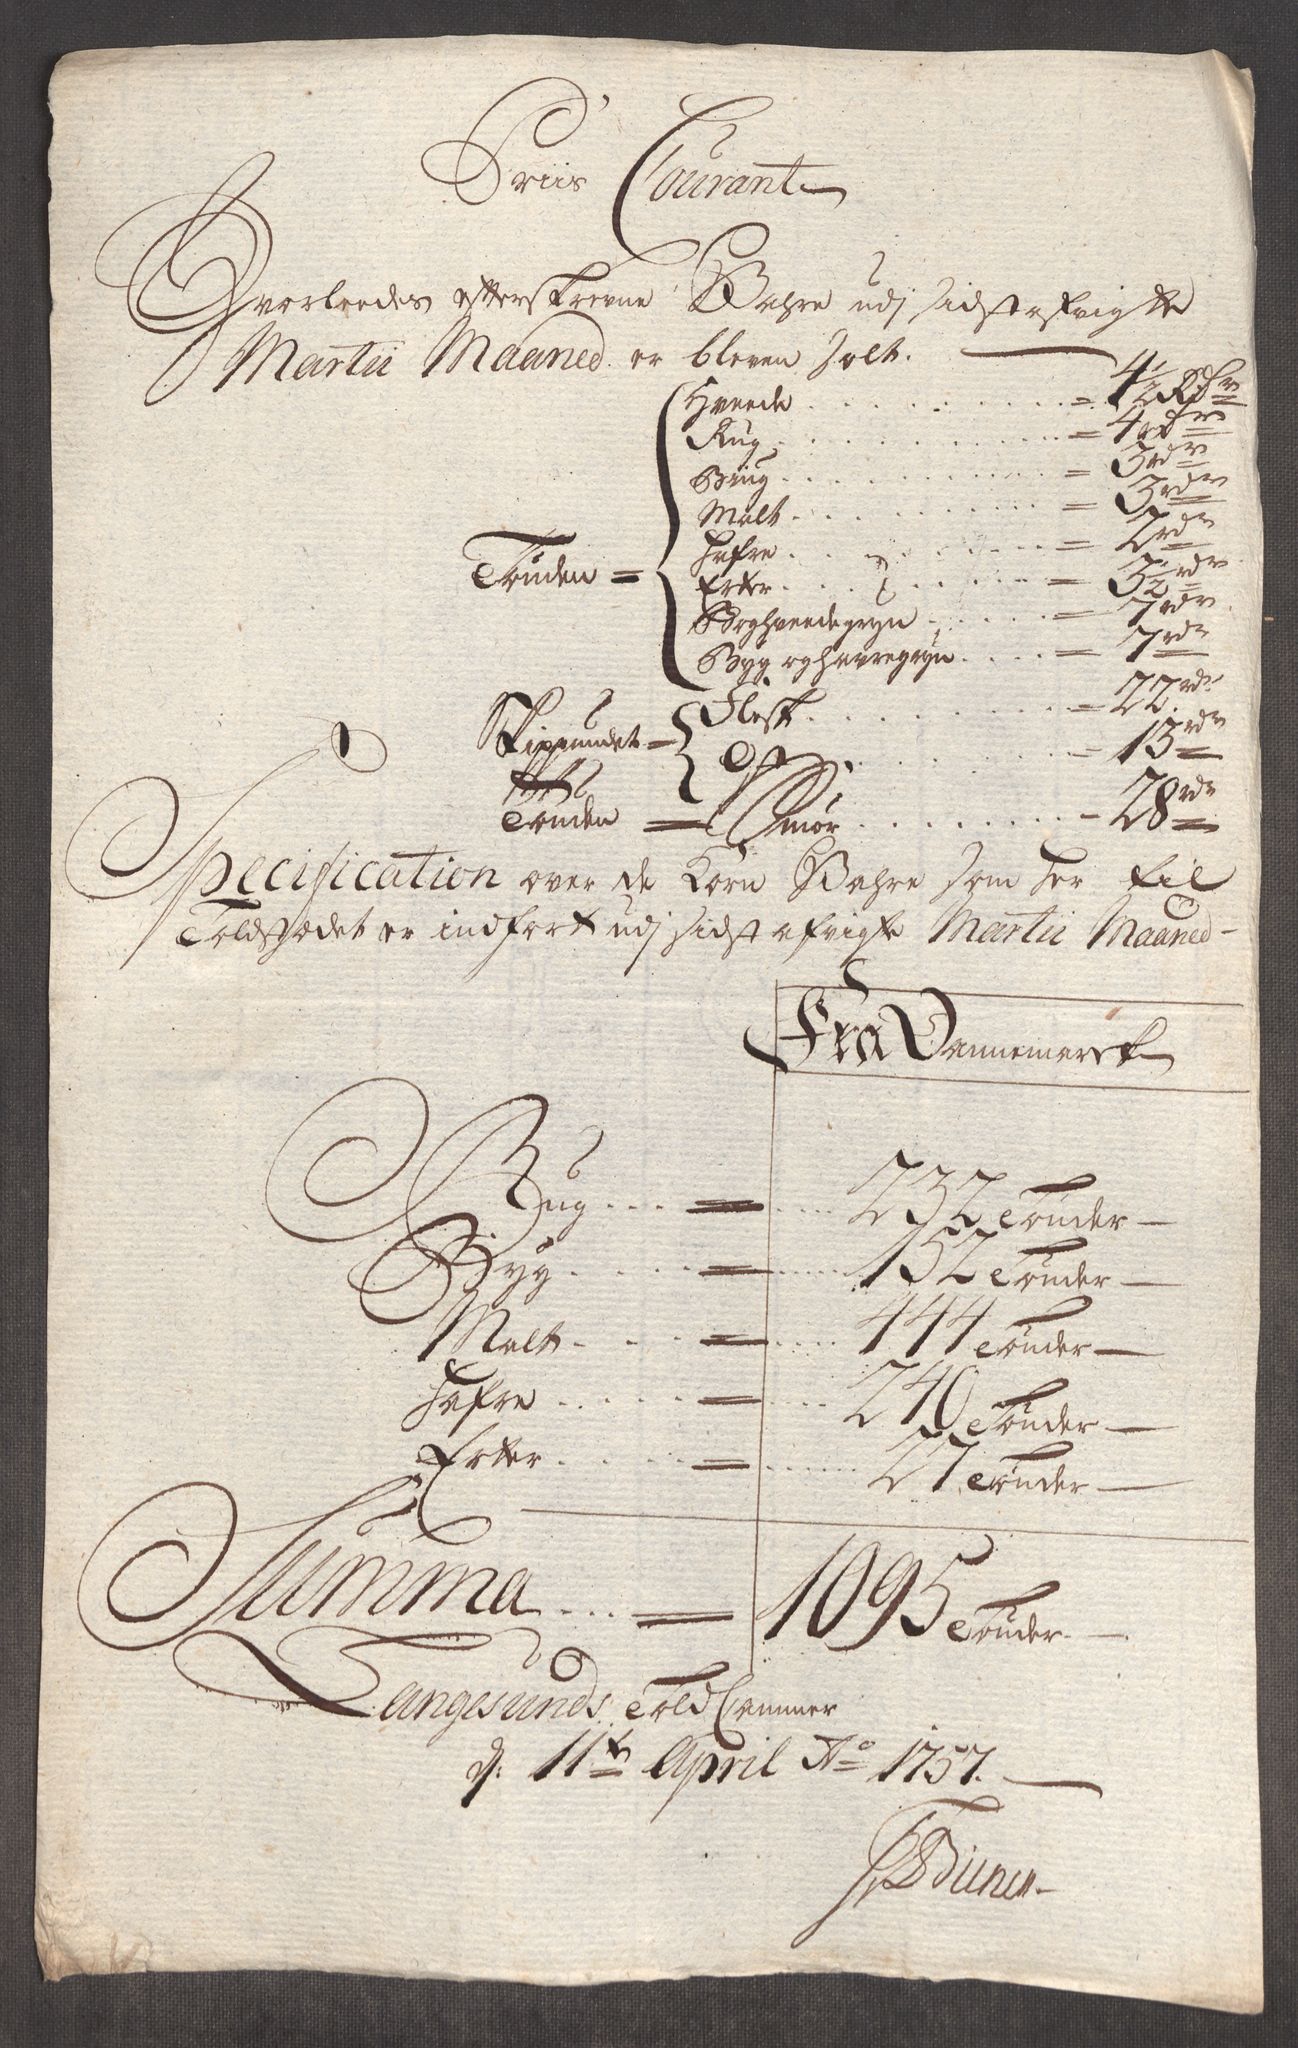 Priis Courant
Hvorleedes efterskrevne Wahre udj sidst afvigte
Martii Maaned er bleven solt.
Hveede = 4½ Rdr
Rug = 4 rdr
Biug = 3 rdr
Malt = 3 rdr
Hafre = 2 rdr
Tønden =
Erter = 3½ rdr
Boghveedegryn = 7 rdr
Byg og havregryn = 7 rdr
Flesk = 22 rdr
Skippundet =
= 13 rdr
Tønden = Smør = 28 rdr
Specification over de Korn Wahre som her til
Toldstædet er indført udj sidst afvigte Martii Maaned
Fra Dannemarck
Rug = 232 Tønder
Byg = 152 Tønder
Malt = 444 Tønder
Hafre = 240 Tønder
Erter = 27 Tønder
Summa = 1095 Tønder
Langesunds Told Cammer
d: 11te April Ao 1757.